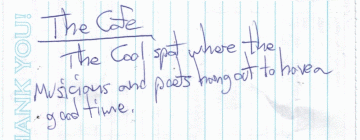 The Cafe
The Cool spot where the
Musicians and poets hang out to have a
good time.
THANK YOU!